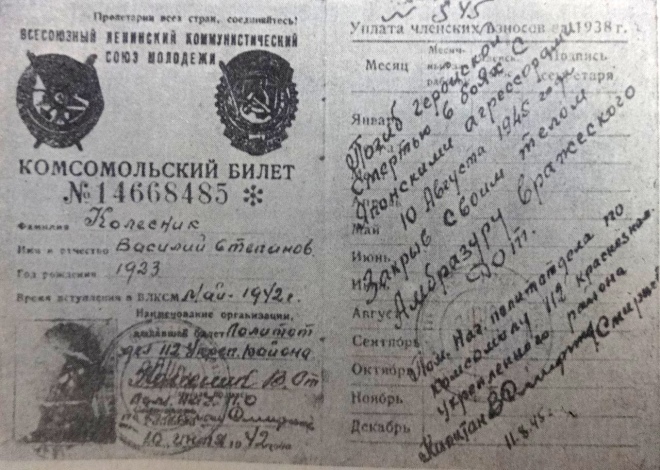 Пролетарии всех стран, соединяйтесь!
ВСЕСОЮЗНЫЙ ЛЕНИНСКИЙ КОММУНИСТИЧЕСКИЙ
СОЮЗ МОЛОДЕЖИ
КОМСОМОЛЬСКИЙ БИЛЕТ
№14668485 *
Фамилия Колесник
Имя и отчество Василий Степанов.
Год рождения 1923
Время вступления в ВЛКСМ Май-1942 г.
Наименование организации,
выдавшей билет Политот
дел 112 Укреп. Района
10 июля 1942
№ 345
Уплата членских взносов за 1938 г.
Месяц Подпись
секретаря
Январь
Май
Июнь
Август
Сентябрь
Октябрь
Ноябрь
Декабрь
Погиб геройской
смертью в боях с
Японскими агрессорами
10 Августа 1945 года
Закрыв своим телом
Амбразуру вражеского
Дот.
Пом. Нач. политотдела по
комсомолу 112 краснознам.
укрепленного района
Капитан
11.8.45